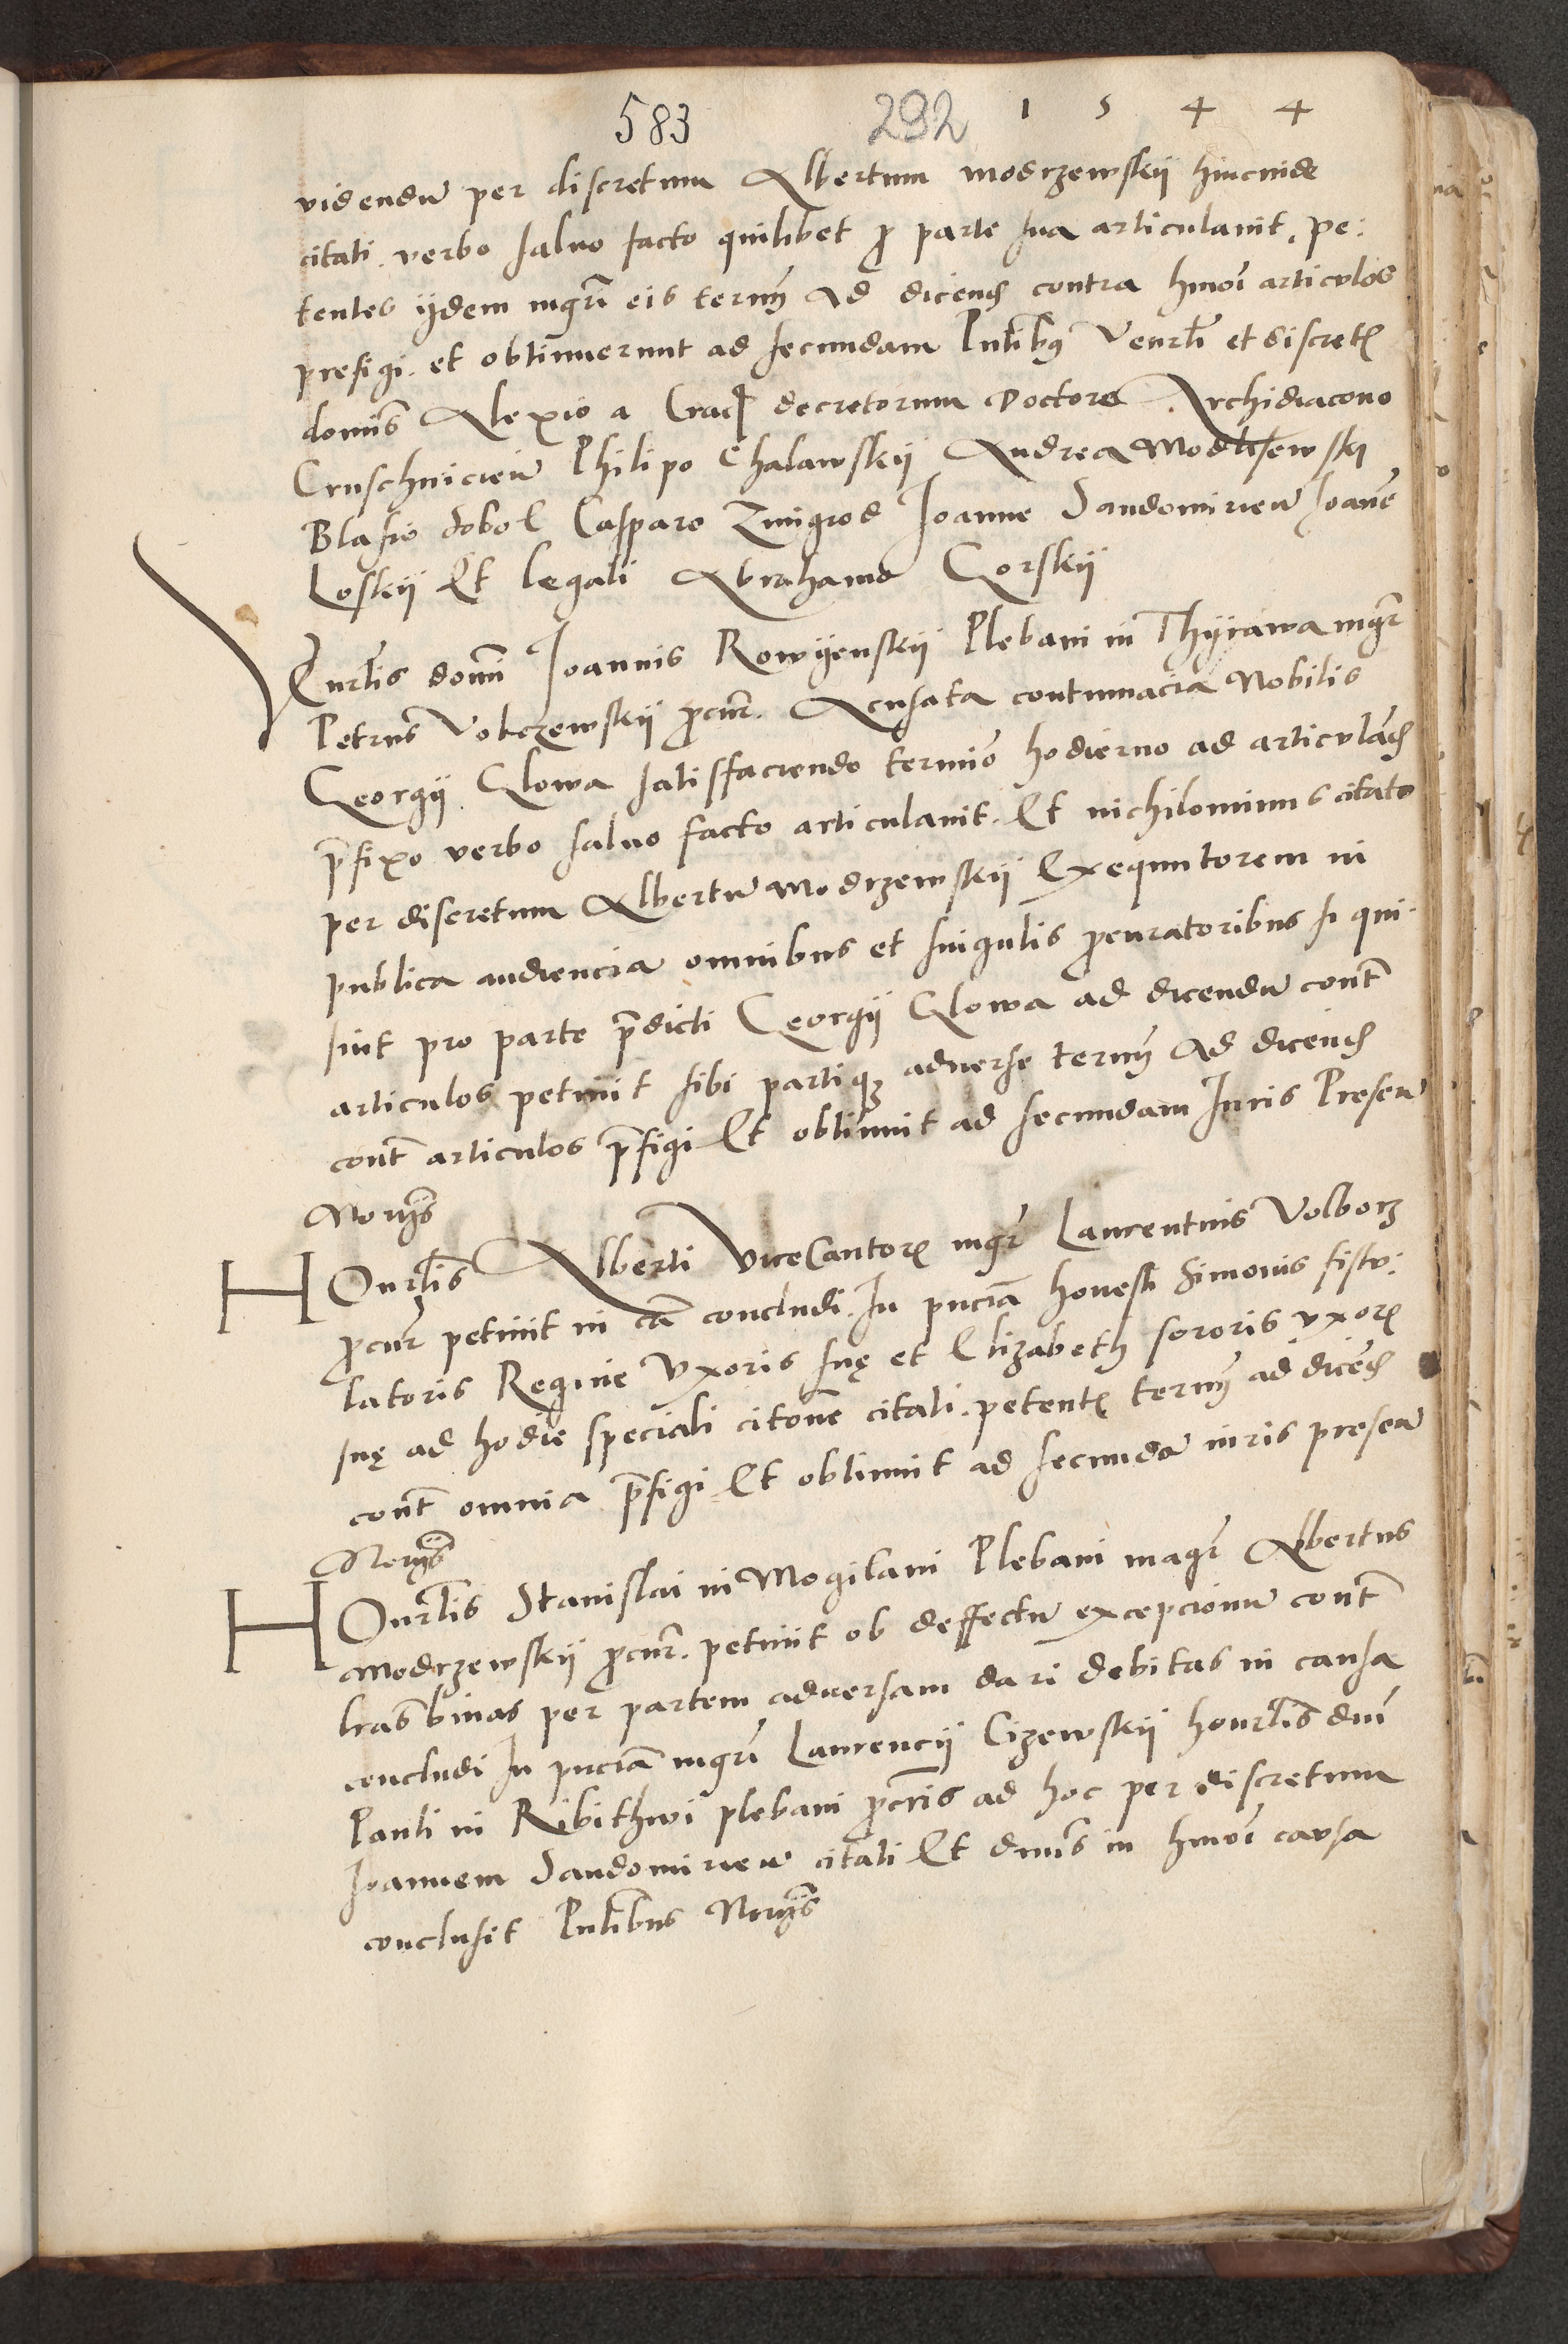 583 292 1 5 4 4
videndū per discretum Albertum modrzewskij hincinde
citati. verbo saluo facto quilibet ꝑ parte sua articulauit. pe:
tentes ijdem mgri eis termn̄ ad dicend̄ contra hmōi articulos
prefigi. et obtinuerunt ad secundam Pntibꝰ Venrli et discret̄
domīs Alexio a Crac̄ decretorum Doctore Archidiacono
Cruschwicień Philipo Chalawskij Andrea Modliſewsky
Blasio sobol Casparo Zmigrod Joanne Sandomirień Joañe
Loskij Et legali Abrahamo Gorskij
Venrlis domi Joannis Rowijenskij Plebani in Thijrawa mgr̄
Petrus Volczewskij ꝓcur̄. Acusata contumacia Nobilis
Georgij Glowa satisfaciendo termīo hodierno ad articuland̄
p̄fixo verbo saluo facto articulauit. Et nichilominus citato
per discretum Albertū Modrzewskij Exequutorem in
publica audiencia omnibus et singulis ꝓcuratoribus si qui
sint pro parte p̄dicti Georgij Glowa ad dicendū cont̄
articulos petiuit sibi partiqꝫ aduerse termn̄ ad dicend̄
cont̄ articulos p̄figi Et obtinuit ad secundam Juris Presen̄
Norijs
HOnrlis Alberti ViceCantor̄ mgr̄ Laurentius Volborz
ꝓcur̄ petiuit in cā concludi. In pnciā honesti Simonis fistu:
latoris Regine Vxoris suę et Elizabeth sororis vxor̄
suę ad hodie speciali citone citati. petent̄ termn̄ ad dicend̄
cont̄ omnia p̄figi Et obtinuit ad secundā iuris presen̄
Norijs
HOnrlis Stanislai in Mogilani Plebani magr̄ Albertus
Modrzewskij ꝓcur̄. petiuit ob deffectū excepcionū cont̄
lras binas per partem aduersam dari debitas in causa
concludi In pnciā mgri Laurencij Cizewskij honrlis dni
Pauli in Ribithwi plebani ꝓcris ad hoc per discretum
Joannem Sandomirień citati Et dnus in hmōi causa
conclusit Pntibus Norijs